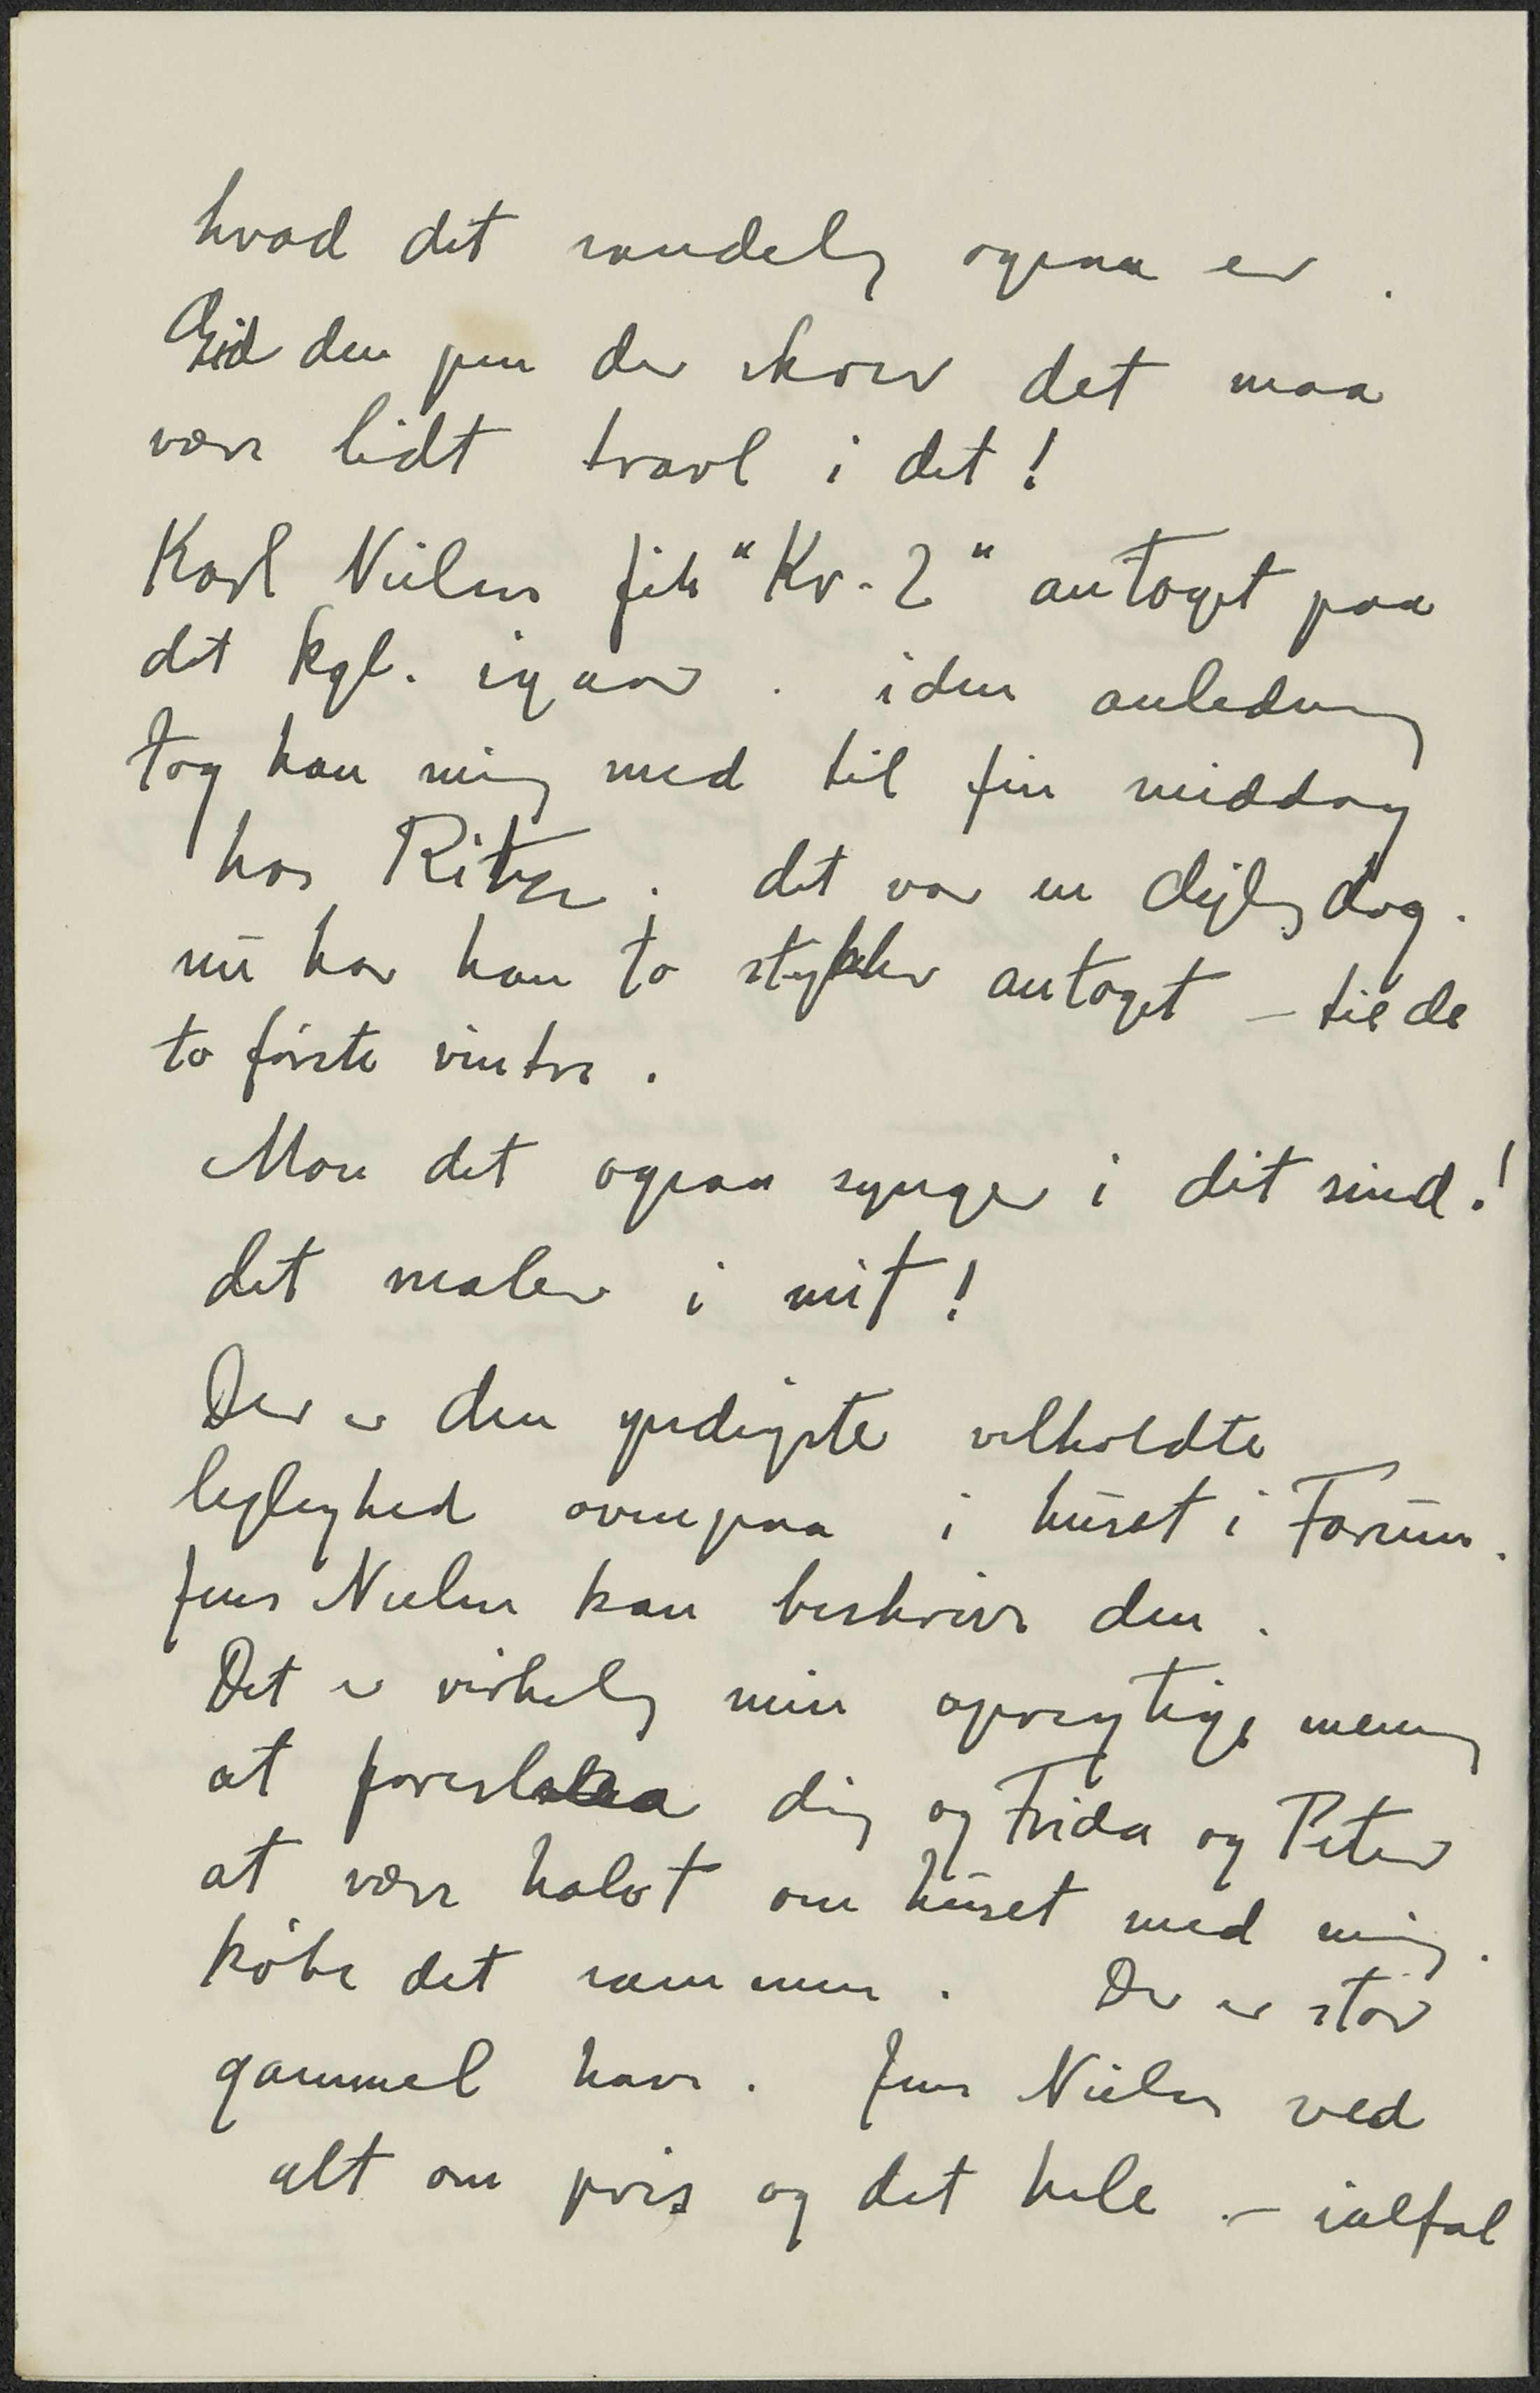 hvad det sandelig ogsaa er.
Gid den pen der skrev det maa
være lidt travl i det!
Karl Nielsen fik "Kv. 2" antaget paa
det kgl. igaar. i den anledning
tog han mig med til fin middag
hos Ritz. det var en dejlig dag.
nu har han to stykker antaget – til de
to förste vintre.
Mon det ogsaa synger i dit sind!
det maler i mit!
Der er den yndigste velholdte
lejlighed ovenpaa i huset i Farum.
Jens Nielsen kan beskrive den.
Det er virkelig min oprigtige mening
at foreslaa dig og Frida og Peter
at være halvt om huset med mig.
köbe det sammen. Der er stor
gammel have. Jens Nielsen ved
alt om pris og det hele – ialfal